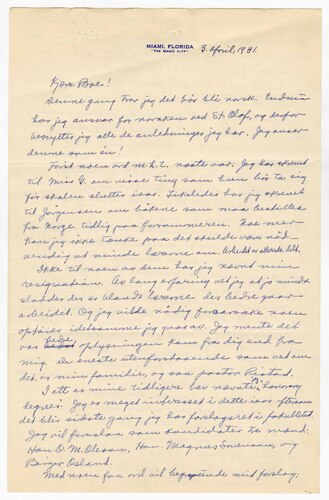 MIAMI, FLORIDA
"THE MAGIC CITY"
3. April, 1931.
Kjære Boe!
Denne gang tror jeg det bør bli norsk. Endnu
har jeg ansvar for norsken ved St. Olaf, og derfor
benytter jeg alle de anledninger jeg har. Jeg anser
denne som én!
Först noen ord m.h.t. næste aar. Jeg har skrevet
til Miss G. om visse ting som hun bør ta sig
för skolen slutter ivaar. Likeledes har jeg skrevet
til Jorgensen om bökene som maa bestilles
fra Norge tidlig paa forsommeren. Noe mer
kan jeg ikke tænke paa det skulde være nöd-
vendig at minde lærerne om. Arbeidet er allerede delt.
Ikke til noen av dem har jeg nævnt min
resignation. Av lang erfaring vet jeg at jo mindre
sladder der er blandt lærerne des bedre gaar
arbeidet. Og jeg vilde nödig foraarsake noen
optöier idetsamme jeg gaar av. Jeg mente det
var bedre oplysningen kam fra dig end fra
mig. De eneste utenforstaaende som vet om
det, er min familie, og saa pastor Ristad.
I ett av mine tidligere brev nævnte jeg "honorary
degrees". Jeg er meget interesset i dette iaar eftersom
det blir sidste gang jeg har forslagsret i fakultetet.
Jeg vil foreslaa som kandidater tre mænd:
Hon. O. M. Oleson, Hon. Magnus Swenson, og
Birger Osland.
Med noen faa ord vil begrunde mit forslag.